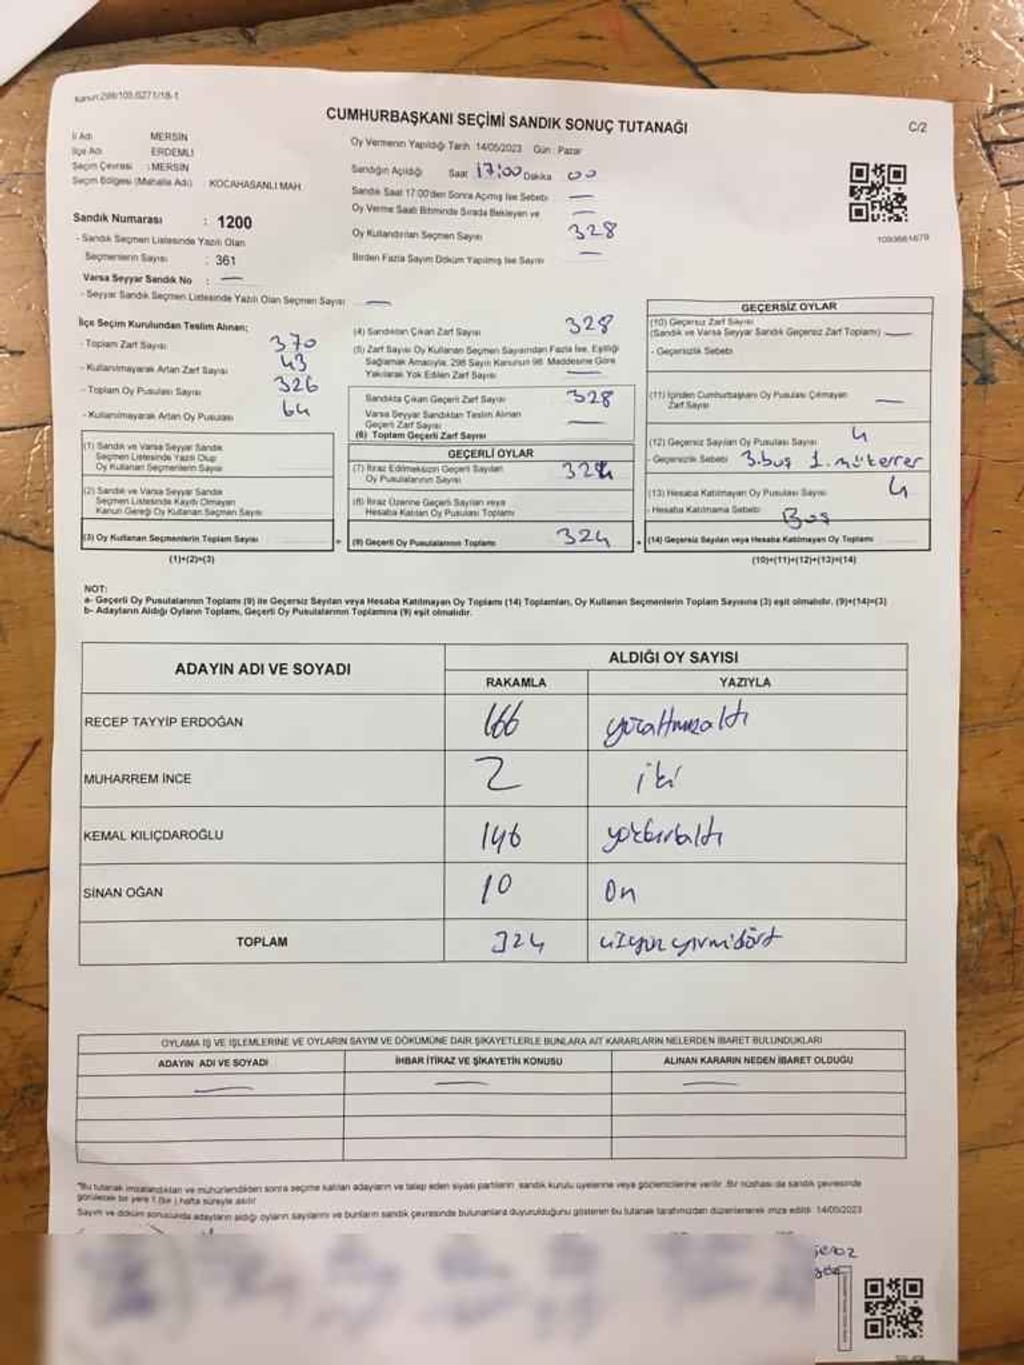 Kanun:298/105,6271/18-1
CUMHURBAŞKANI SEÇİMİ SANDIK SONUÇ TUTANAĞI
C/2
İl Adı MERSİN
İlçe Adı ERDEMLİ
Seçim Çevresi : MERSİN
Seçim Bölgesi (Mahalle Adı) : KOCAHASANLI MAH.
Sandık Numarası : 1200
- Sandık Seçmen Listesinde Yazılı Olan
Seçmenlerin Sayısı : 361
Varsa Seyyar Sandık No : —
- Seyyar Sandık Seçmen Listesinde Yazılı Olan Seçmen Sayısı —
Oy Vermenin Yapıldığı Tarih 14/05/2023 Gün : Pazar
Sandığın Açıldığı Saat 17:00 Dakika 00
Sandık Saat 17:00'den Sonra Açılmış İse Sebebi —
Oy Verme Saati Bitiminde Sırada Bekleyen ve —
Oy Kullandırılan Seçmen Sayısı 328
Birden Fazla Sayım Döküm Yapılmış İse Sayısı —
1093661679
İlçe Seçim Kurulundan Teslim Alınan;
- Toplam Zarf Sayısı 370
- Kullanılmayarak Artan Zarf Sayısı 43
- Toplam Oy Pusulası Sayısı 326
- Kullanılmayarak Artan Oy Pusulası 64
(1) Sandık ve Varsa Seyyar Sandık
Seçmen Listesinde Yazılı Olup
Oy Kullanan Seçmenlerin Sayısı
(2) Sandık ve Varsa Seyyar Sandık
Seçmen Listesinde Kayıtlı Olmayan
Kanun Gereği Oy Kullanan Seçmen Sayısı
(3) Oy Kullanan Seçmenlerin Toplam Sayısı
(1)+(2)=(3)
(4) Sandıktan Çıkan Zarf Sayısı 328
(5) Zarf Sayısı Oy Kullanan Seçmen Sayısından Fazla İse, Eşitliği
Sağlamak Amacıyla, 298 Sayılı Kanunun 98. Maddesine Göre
Yakılarak Yok Edilen Zarf Sayısı —
Sandıkta Çıkan Geçerli Zarf Sayısı 328
Varsa Seyyar Sandıktan Teslim Alınan
Geçerli Zarf Sayısı —
(6) Toplam Geçerli Zarf Sayısı
GEÇERLİ OYLAR
(7) İtiraz Edilmeksizin Geçerli Sayılan
Oy Pusulalarının Sayısı 324
(8) İtiraz Üzerine Geçerli Sayılan veya
Hesaba Katılan Oy Pusulası Toplamı
(9) Geçerli Oy Pusulalarının Toplamı 324
GEÇERSİZ OYLAR
(10) Geçersiz Zarf Sayısı
(Sandık ve Varsa Seyyar Sandık Geçersiz Zarf Toplamı) —
- Geçersizlik Sebebi
(11) İçinden Cumhurbaşkanı Oy Pusulası Çıkmayan
Zarf Sayısı —
(12) Geçersiz Sayılan Oy Pusulası Sayısı 4
- Geçersizlik Sebebi 3.boş 1.mükerrer
(13) Hesaba Katılmayan Oy Pusulası Sayısı 4
- Hesaba Katılmama Sebebi Boş
(14) Geçersiz Sayılan veya Hesaba Katılmayan Oy Toplamı
(10)+(11)+(12)+(13)=(14)
NOT:
a- Geçerli Oy Pusulalarının Toplamı (9) ile Geçersiz Sayılan veya Hesaba Katılmayan Oy Toplamı (14) Toplamları, Oy Kullanan Seçmenlerin Toplam Sayısına (3) eşit olmalıdır. (9)+(14)=(3)
b- Adayların Aldığı Oyların Toplamı, Geçerli Oy Pusulalarının Toplamına (9) eşit olmalıdır.
ADAYIN ADI VE SOYADI ALDIĞI OY SAYISI
RAKAMLA YAZIYLA
RECEP TAYYİP ERDOĞAN 166 yüzaltmışaltı
MUHARREM İNCE 2 iki
KEMAL KILIÇDAROĞLU 146 yüzkırkaltı
SİNAN OĞAN 10 On
TOPLAM 324 üçyüzyirmidört
OYLAMA İŞ VE İŞLEMLERİNE VE OYLARIN SAYIM VE DÖKÜMÜNE DAİR ŞİKAYETLERLE BUNLARA AİT KARARLARIN NELERDEN İBARET BULUNDUKLARI
ADAYIN ADI VE SOYADI İHBAR İTİRAZ VE ŞİKAYETİN KONUSU ALINAN KARARIN NEDEN İBARET OLDUĞU
— — —
*Bu tutanak imzalandıktan ve mühürlendikten sonra seçime katılan adayların ve talep eden siyasi partilerin sandık kurulu üyelerine veya gözlemcilerine verilir. Bir nüshası da sandık çevresinde
görülecek bir yere 1 (bir) hafta süreyle asılır.
Sayım ve döküm sonucunda adayların aldığı oyların sayılarını ve bunların sandık çevresinde bulunanlara duyurulduğunu gösteren bu tutanak tarafımızdan düzenlenerek imza edildi. 14/05/2023